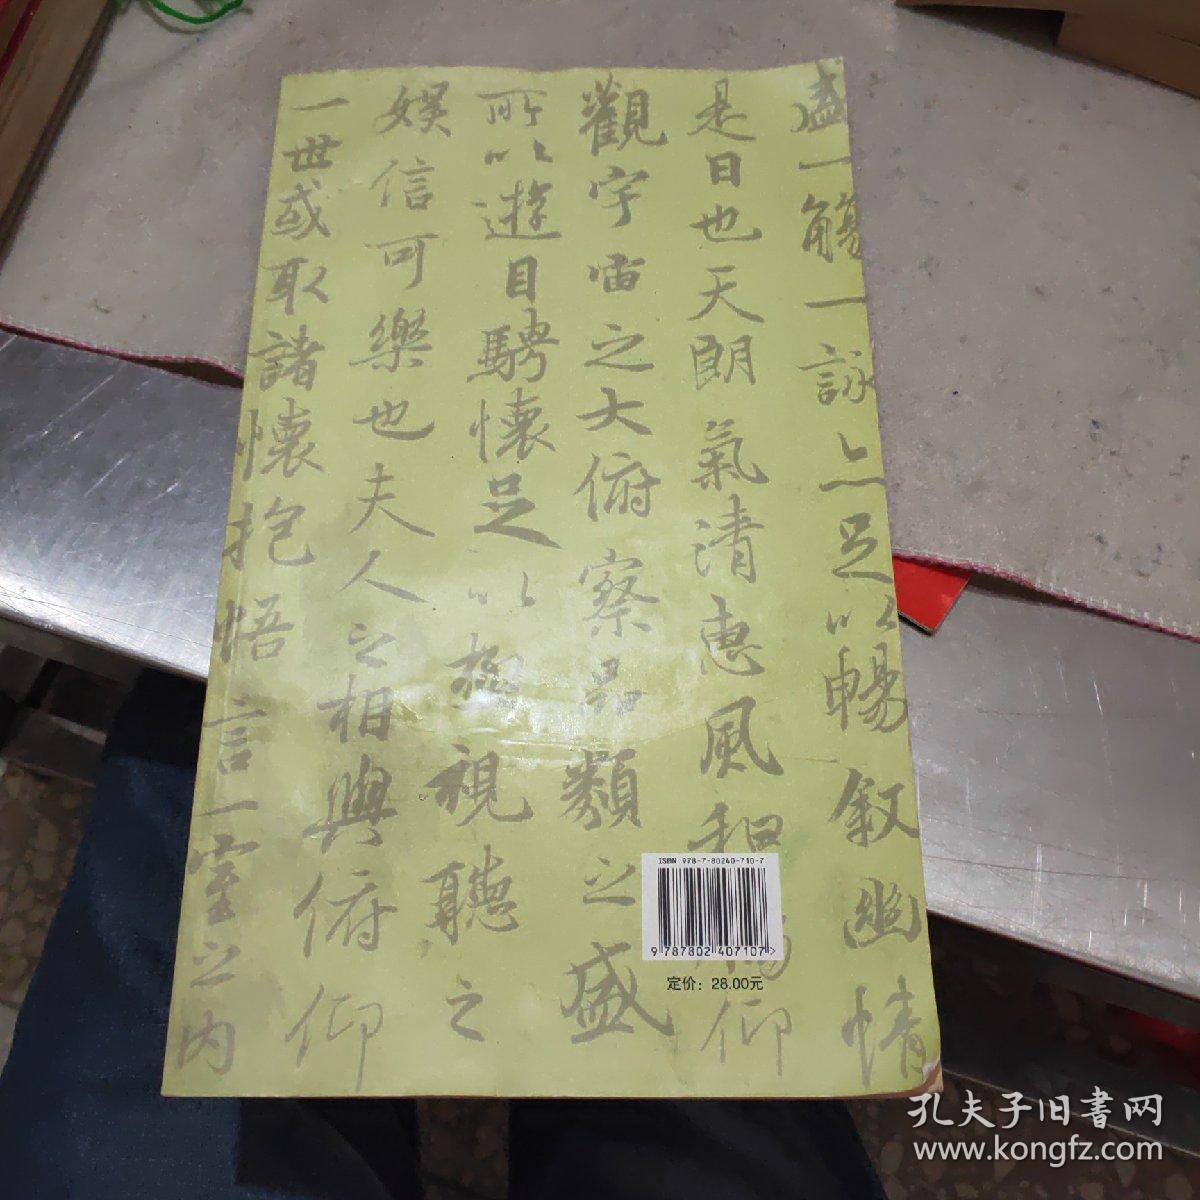 盛一觴一詠亦足以暢叙幽情
是日也天朗氣清惠風和暢仰
觀宇宙之大俯察品類之盛
所以遊目騁懷足以極視聽之
娛信可樂也夫人之相與俯仰
一世或取諸懷抱悟言一室之内
ISBN 978-7-80240-710-7
9 787802 407107>
定价：28.00元
孔夫子旧書网
www.kongfz.com